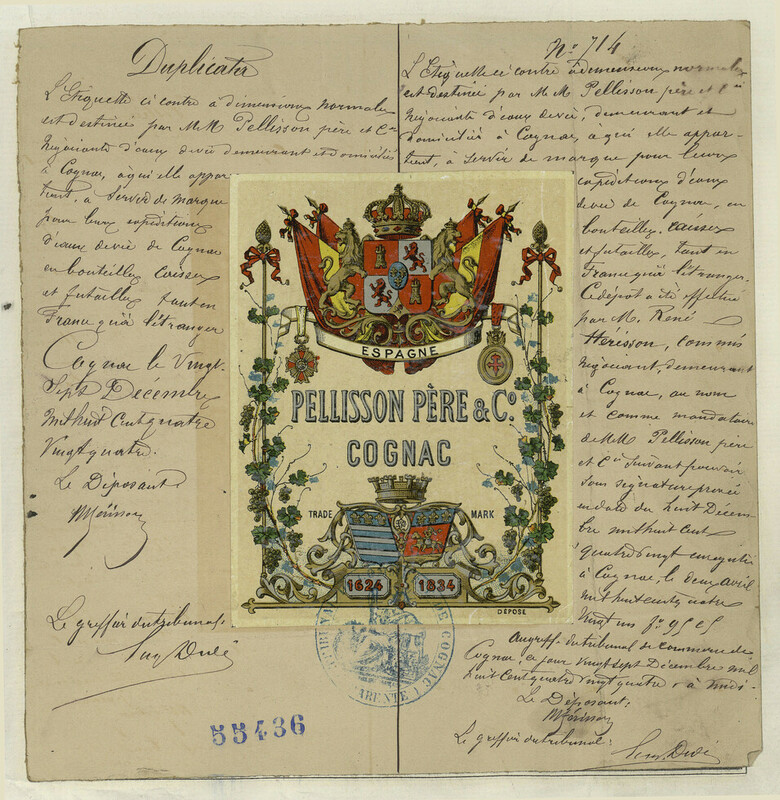 Duplicata
L'Etiquette ci contre à dimensions normales
est destinée par MM. Pellisson père et Cie
Négociants d'eaux de vie demeurant et domiciliés
à Cognac, à qui elle appar
tient, à servir de marque
pour leurs expéditions
d'eaux de vie de Cognac
en bouteilles caisses
et futailles tant en
France qu'à l'étranger
Cognac le Vingt
Sept Décembre
mil huit Cent quatre
Vingt quatre.
Le Déposant
Le greffier du tribunal.
55436
No 714
L'Etiquette ci contre à dimensions normales
est destinée par MM Pellisson père et Cie
Négociants d'eaux de vie, demeurant et
domiciliés à Cognac, à qui elle appar-
tient, à servir de marque pour leurs
expéditions d'eaux
de vie de Cognac, en
bouteilles, caisses
et futailles, tant en
France qu'à l'étranger.
Ce dépôt a été effectué
par M. René
Hérisson, commis
négociant, demeurant
à Cognac, au nom
et comme mandataire
de MM Pellisson père
et Cie suivant pouvoir
sous signature privée
en date du huit Décem
bre mil huit Cent
quatre vingt
à Cognac, le deux avril
mil huit cent quatre
vingt un fo
Au greffe du tribunal de Commerce de
Cognac, ce jour vingt sept Décembre mil
huit Cent quatre vingt quatre à midi.
Le Déposant:
Le greffier du tribunal:
ESPAGNE
PELLISSON PÈRE & Co.
COGNAC
TRADE MARK
1624 1834
DÉPOSÉ
DE COGNAC